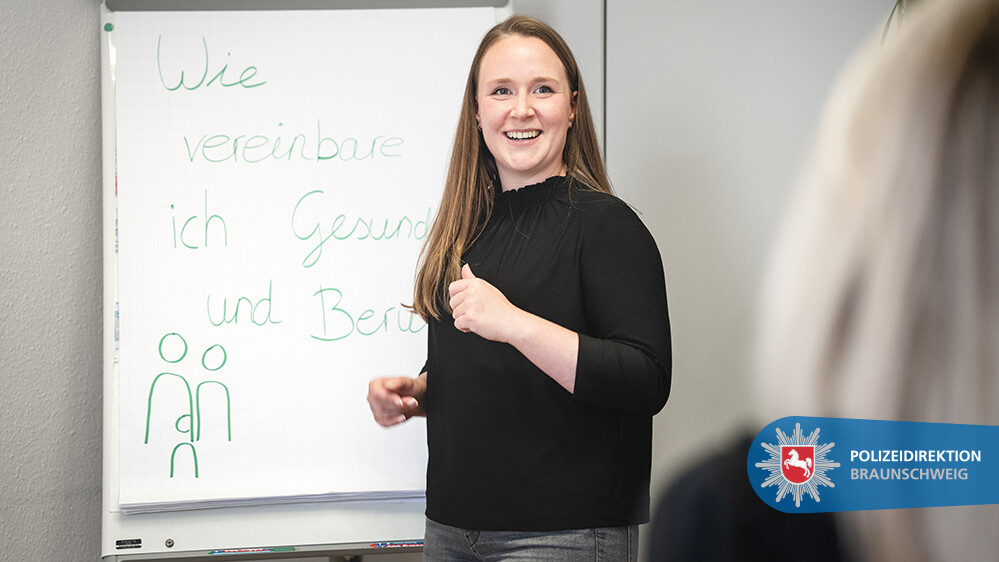 Wie
vereinbare
ich Gesund
und Beru
POLIZEIDIREKTION
BRAUNSCHWEIG